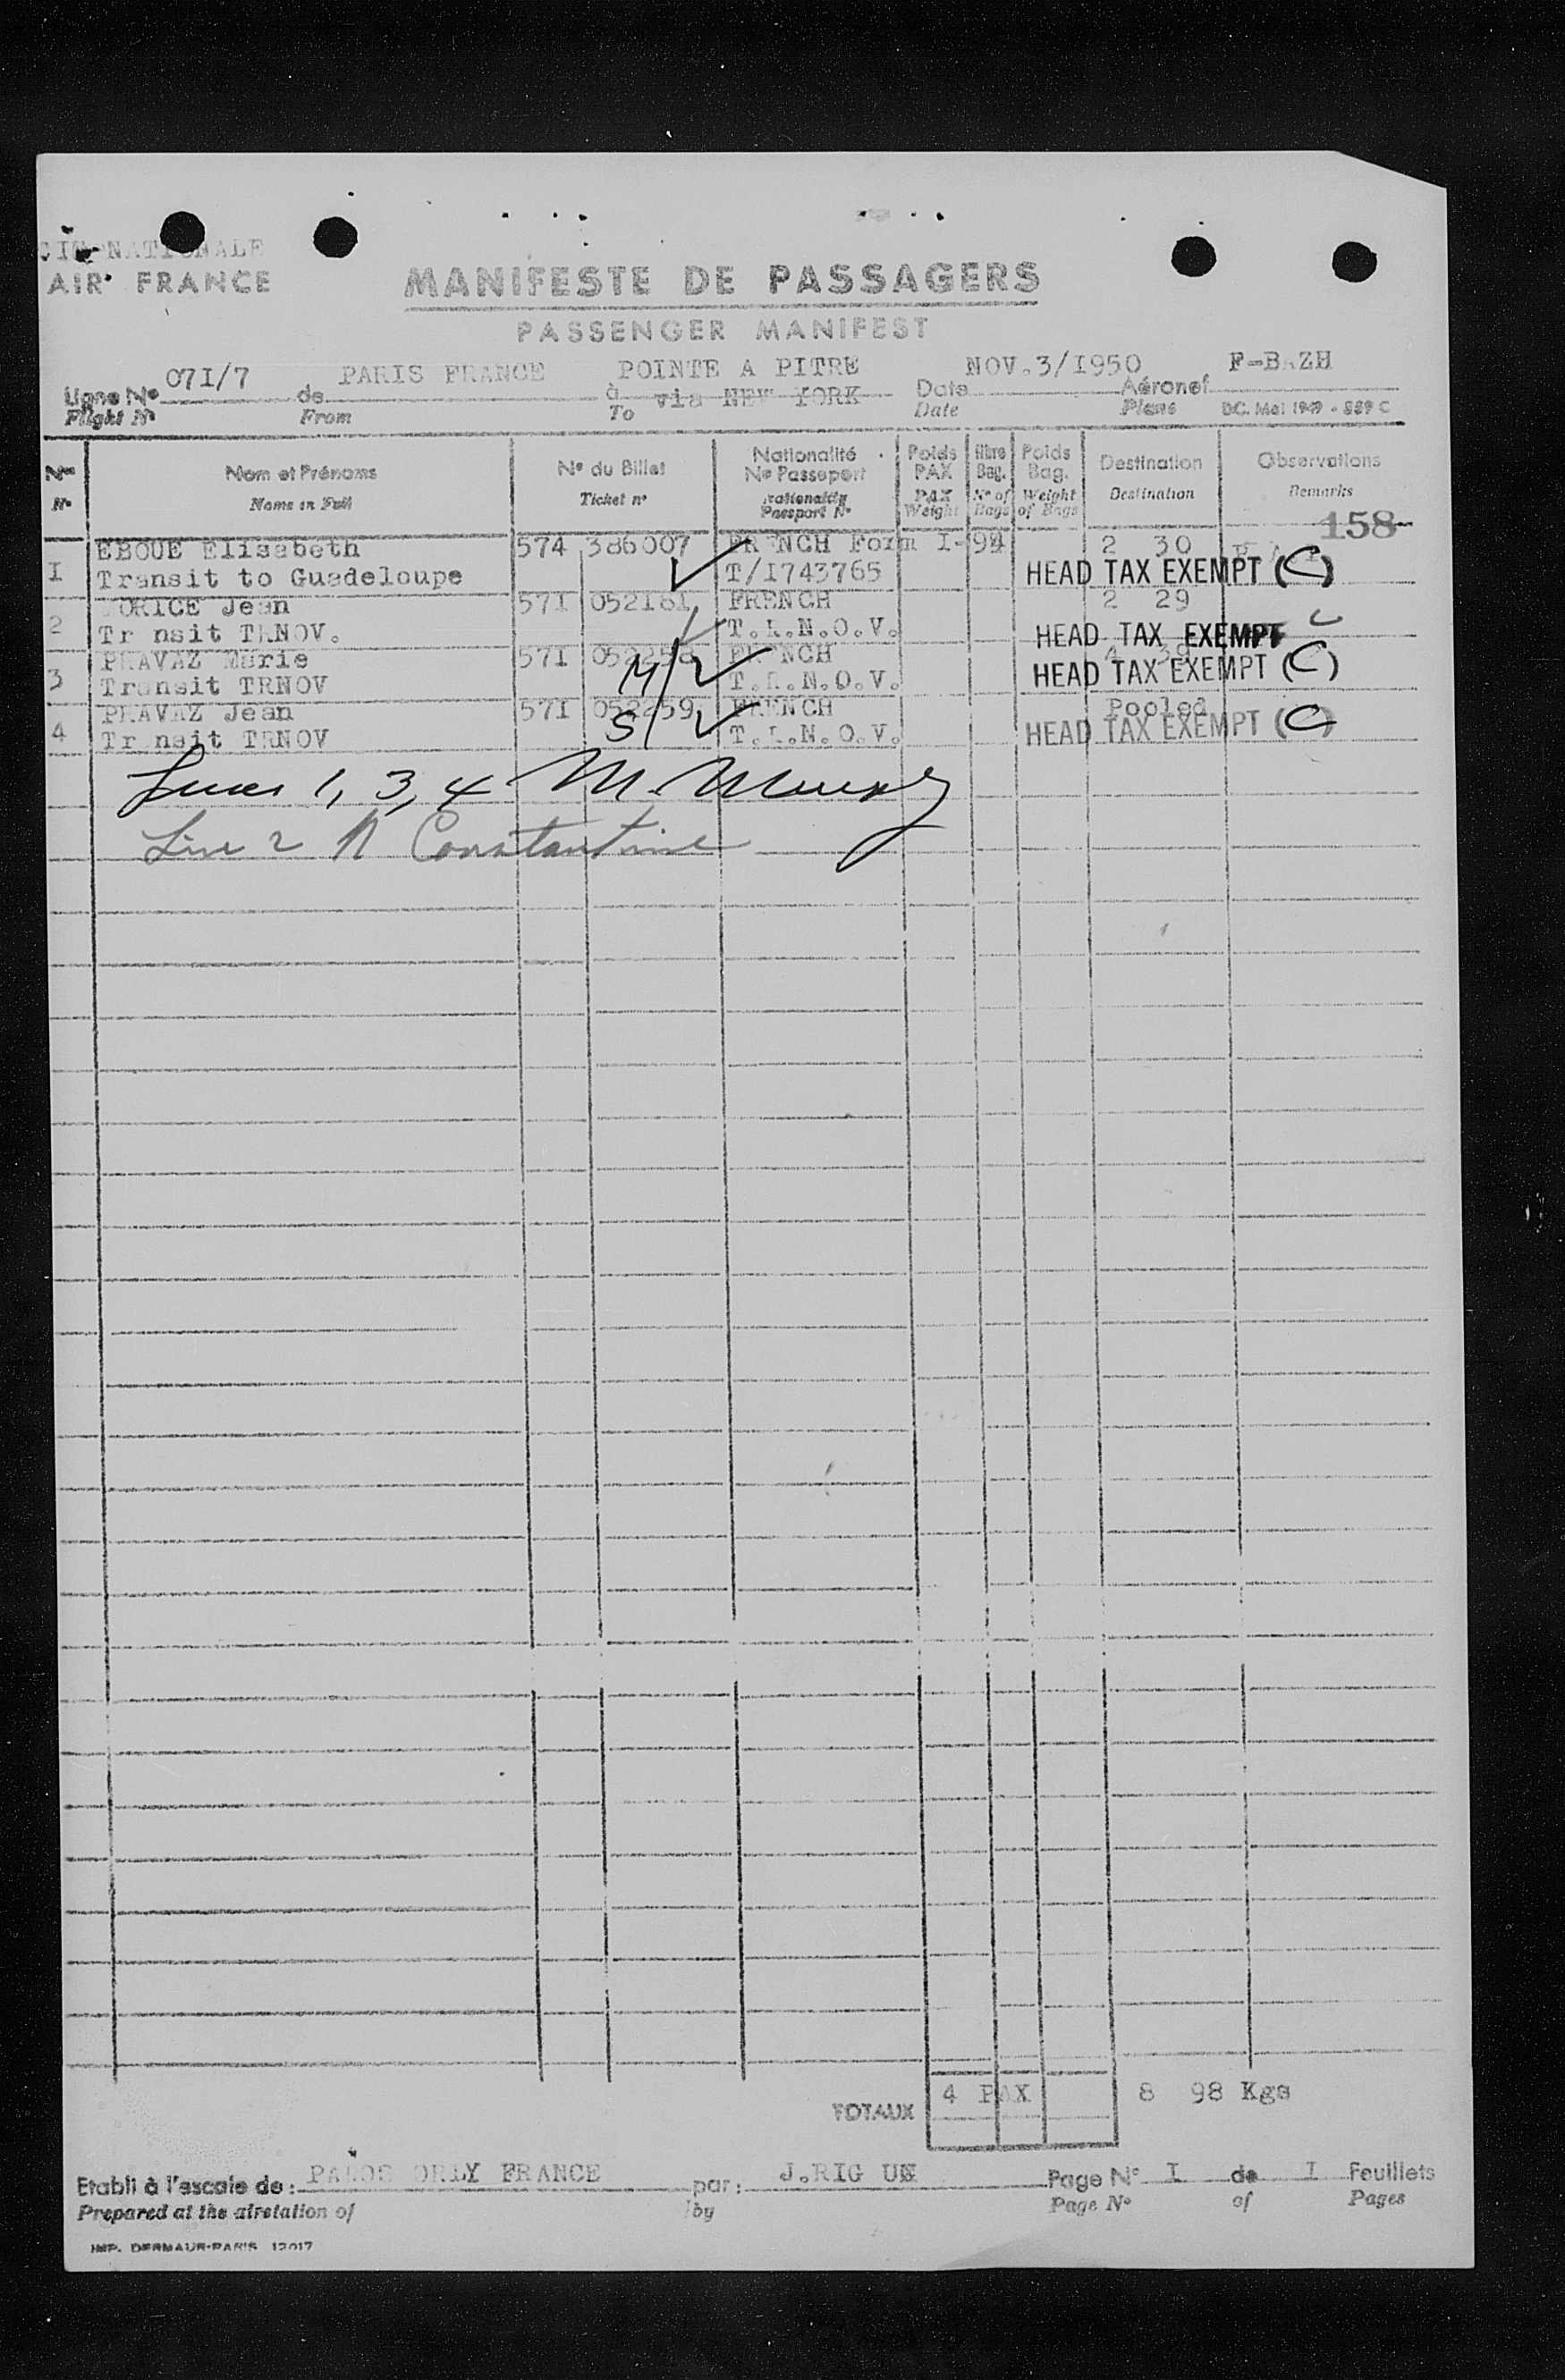 CIE NATIONALE
AIR FRANCE
MANIFESTE DE PASSAGERS
PASSENGER MANIFEST
Ligne No 071/7 de PARIS FRANCE à POINTE A PITRE Date NOV.3/1950 Aéronef F-BAZH
via NEW YORK
Flight No From To Date Plane DC. Mai 1949 - 889 C
Nos Nom et Prénoms No du Billet Nationalité No Passeport Poids PAX Nbre Bag. Poids Bag. Destination Observations
No Name in Full Ticket no Nationality Passport No PAX Weight No of Bags Weight of Bags Destination Remarks
158
EBOUE Elisabeth 574 386007 FRENCH Form I-94 2 30
I Transit to Guadeloupe T/I743765 HEAD TAX EXEMPT (C)
Jean 57I 052181 FRENCH 2 29
2 Tr nsit TRNOV. T.R.N.O.V. HEAD TAX EXEMPT C
PRAVAZ Marie 57I 052258 FRENCH 4 39
3 Transit TRNOV M/ T.R.N.O.V. HEAD TAX EXEMPT (C)
PRAVAZ Jean 57I 052259 FRENCH Pooled
4 Tr nsit TRNOV S/ T.R.N.O.V. HEAD TAX EXEMPT (C)
Lines 1, 3, 4 M. Murphy
Line 2 N Constantine
TOTAUX 4 PAX 8 98 Kgs
Etabli à l'escale de: ORLY FRANCE par: Page No I de I Feuillets
Prepared at the airstation of by Page No of Pages
IMP. DERMAUR-PARIS 12017